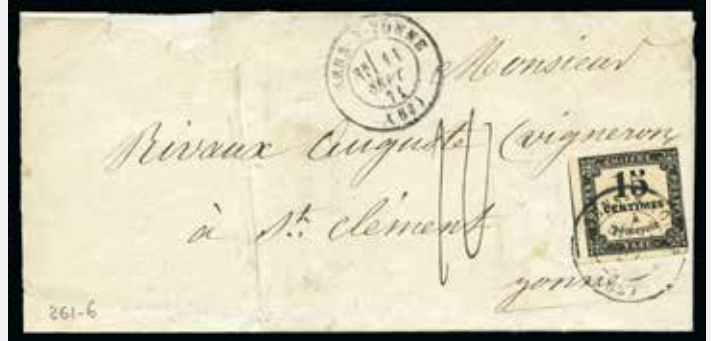 SENS-S-YONNE
11
SEPT
71
(83)
Monsieur
Rivaux Auguste (vigneron
à St. Clément
yonne
CHIFFRE
15
CENTIMES
à
Percevoir
TAXE
261-6